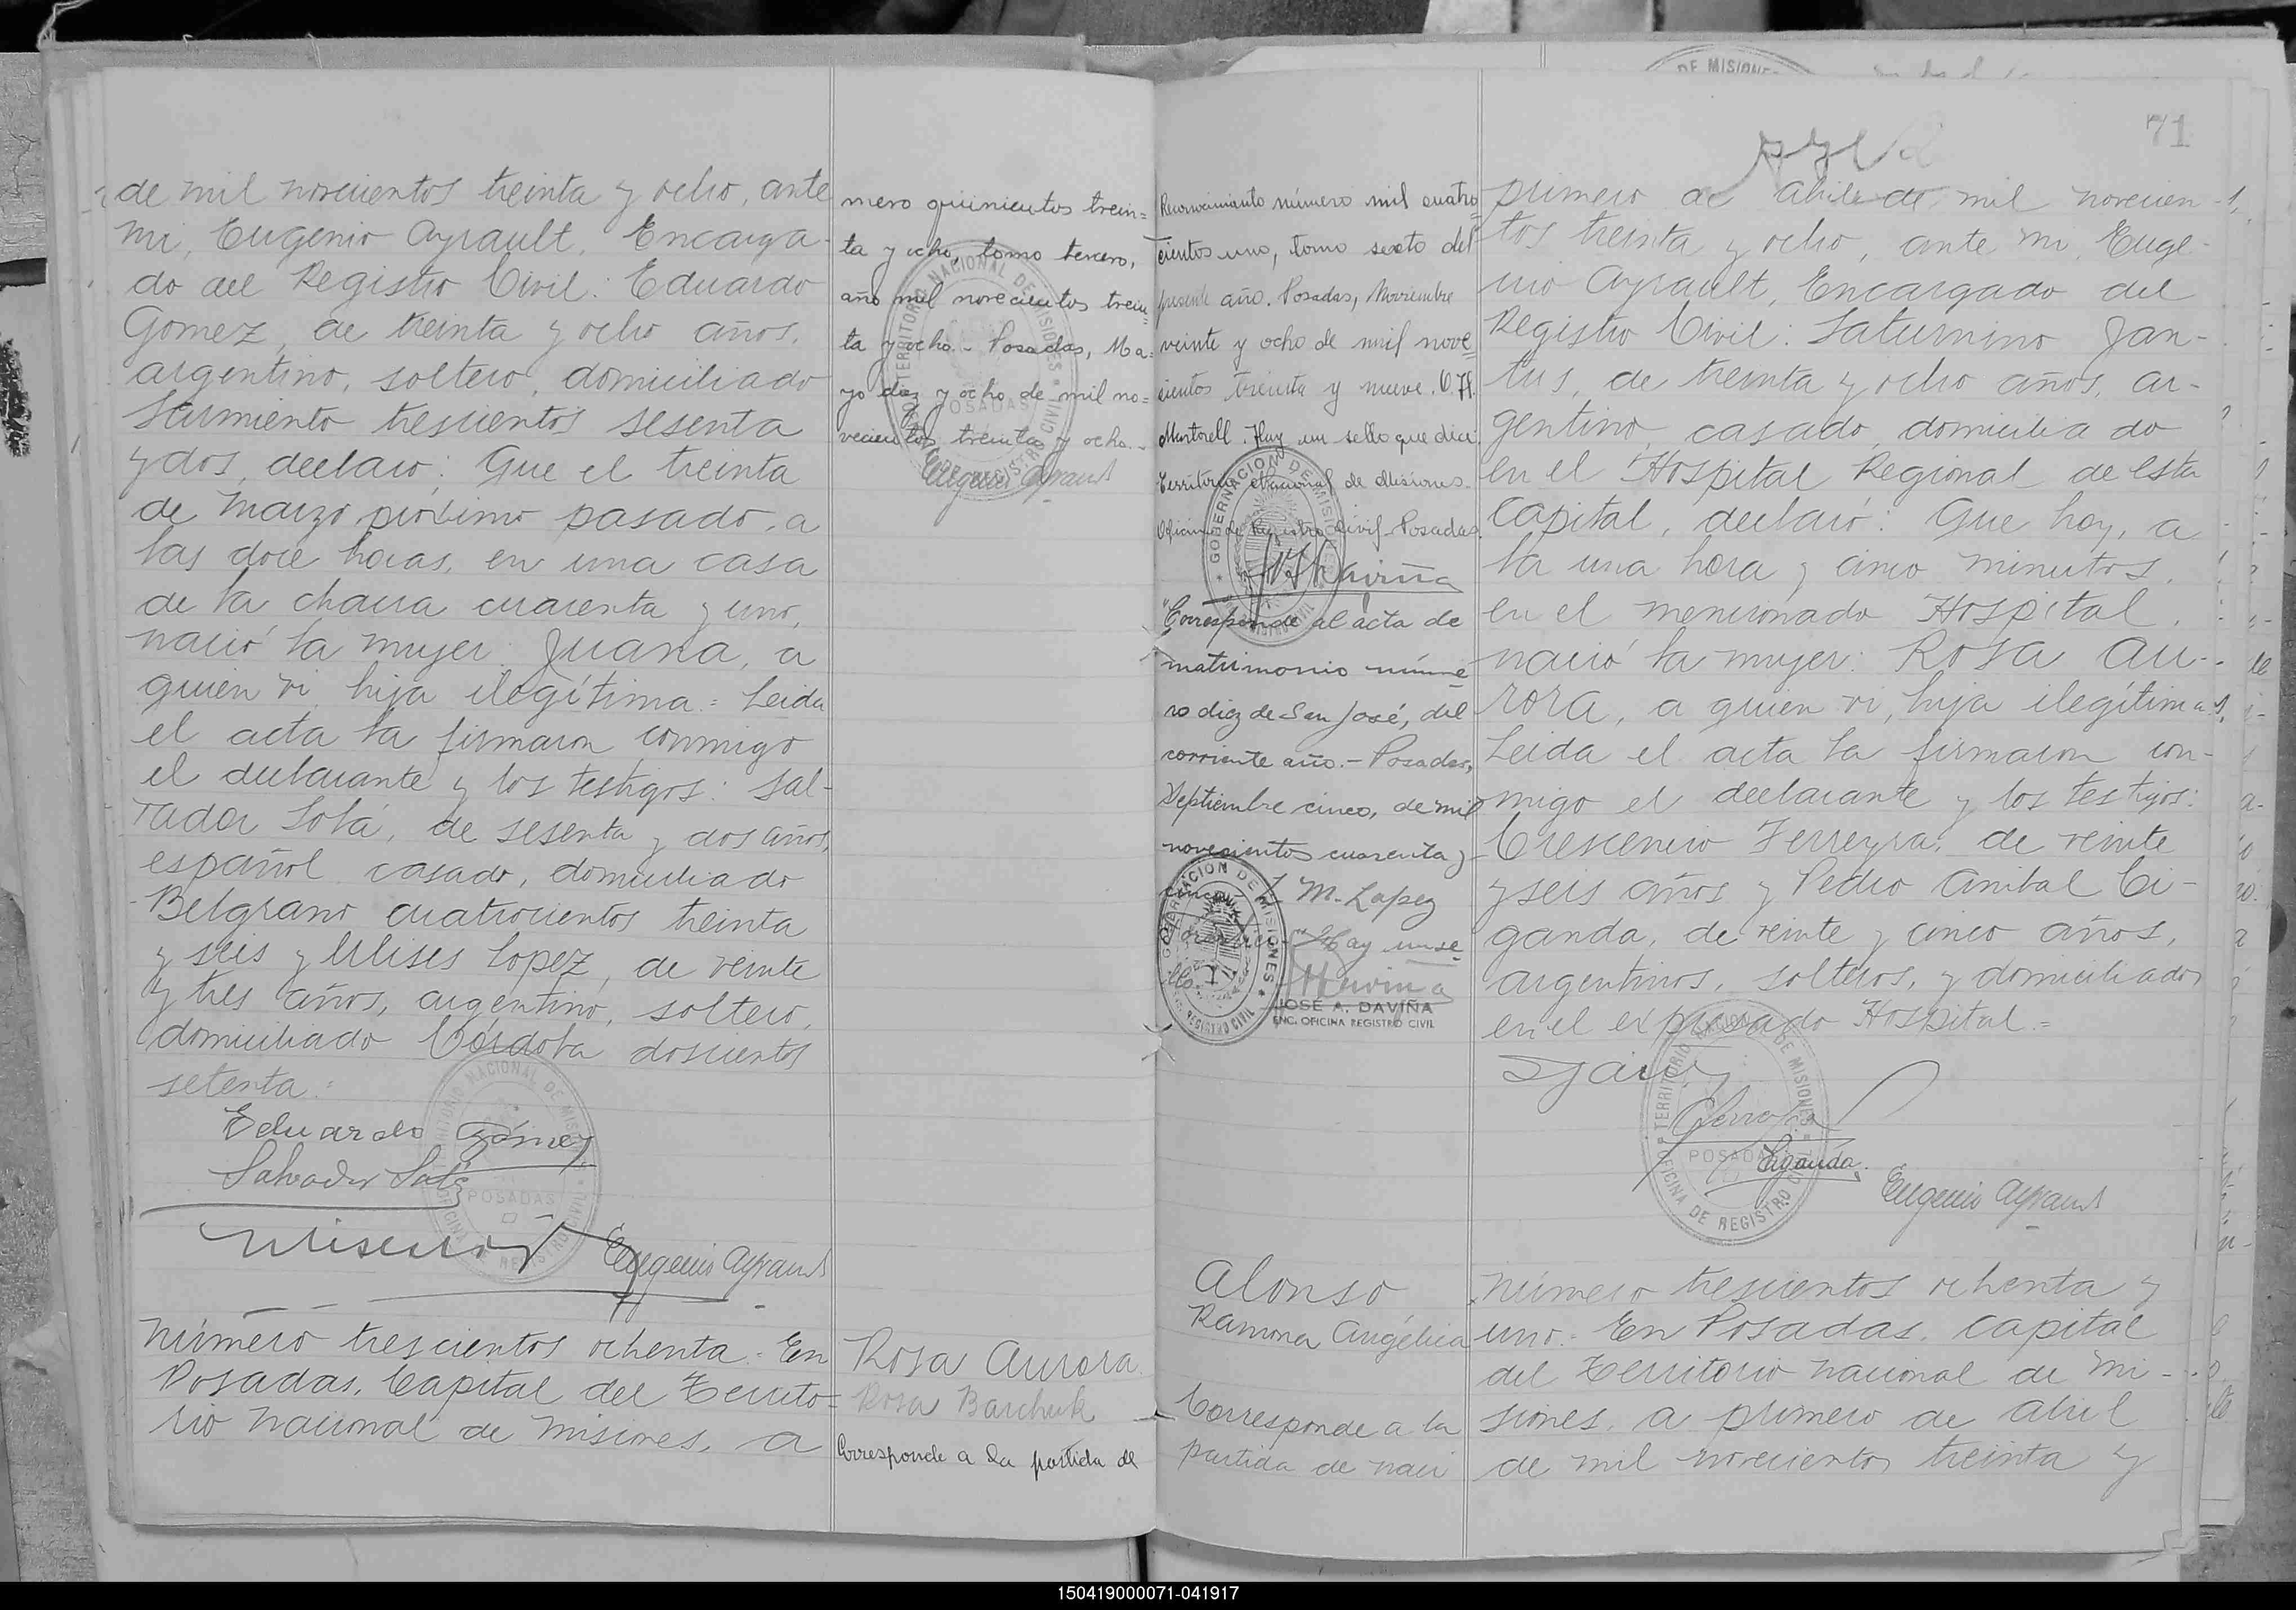 de mil novecientos treinta y ocho, ante
mi, Eugenio Ayrault, Encarga-
do del Registro Civil: Eduardo
Gomez, de treinta y ocho años,
argentino, soltero, domiciliado
Sarmiento trescientos sesenta
y dos, declaró: Que el treinta
de Marzo próximo pasado, a
las doce horas, en una casa
de la chacra cuarenta y uno,
nació la mujer: Juana, a
quien vi, hija ilegítima.= Leida
el acta la firmaron conmigo
el declarante y los testigos: Sal-
vador Solá, de sesenta y dos años,
español, casado, domiciliado
Belgrano cuatrocientos treinta
y seis y Ulises Lopez, de veinte
y tres años, argentino, soltero,
domiciliado Córdoba doscientos
setenta.=
Eduardo Gómez
Salvador Solá
Eugenio Ayrault
Número trescientos ochenta.= En
Posadas, Capital del Territo-
rio Nacional de Misiones, a
mero quinientos trein=
ta y ocho, tomo tercero,
año mil novecientos trein-
ta y ocho.- Posadas, Ma=
yo diez y ocho de mil no=
vecientos treinta y ocho.-
Eugenio Ayrault
TERRITORIO NACIONAL DE MISIONES
POSADAS
OFICINA DE REGISTRO CIVIL
Rosa Aurora.
Rosa Barchuk
Corresponde a la partida de
Reconocimiento número mil cuatro-
cientos uno, tomo sexto del
presente año. Posadas, Noviembre
veinte y ocho de mil nove=
cientos treinta y nueve. C. H.
Martorell. Hay un sello que dice:
Territorio Nacional de Misiones.
Oficina de Registro Civil-Posadas.
GOBERNACION DE MISIONES
REGISTRO CIVIL
"Corresponde al acta de
matrimonio núme-
ro diez de San José, del
corriente año.- Posadas,
Septiembre cinco, de mil
novecientos cuarenta y
M. Lopez
Hay un se=
llo
GOBERNACION DE MISIONES
REGISTRO CIVIL
JOSÉ A. DAVIÑA
ENC. OFICINA REGISTRO CIVIL
Alonso
Ramona Angélica
Corresponde a la
partida de naci
71
primero de abril de mil novecien-
tos treinta y ocho, ante mi, Euge-
nio Ayrault, Encargado del
Registro Civil: Saturnino Jan-
tus, de treinta y ocho años, ar-
gentino, casado, domiciliado
en el Hospital Regional de esta
Capital, declaró: Que hoy, a
la una hora y cinco minutos,
en el mencionado Hospital,
nació la mujer: Rosa Au-
rora, a quien vi, hija ilegítima.
Leida el acta la firmaron con-
migo el declarante y los testigos:
Crescencio Ferreyra, de veinte
y seis años y Pedro Anibal Ci-
ganda, de veinte y cinco años,
argentinos, solteros, y domiciliados
en el expresado Hospital.=
Ciganda.
Eugenio Ayrault
TERRITORIO NACIONAL DE MISIONES
POSADAS
OFICINA DE REGISTRO CIVIL
Número trescientos ochenta y
uno.= En Posadas, Capital
del Territorio Nacional de Mi-
siones, a primero de abril
de mil novecientos treinta y
150419000071-041917